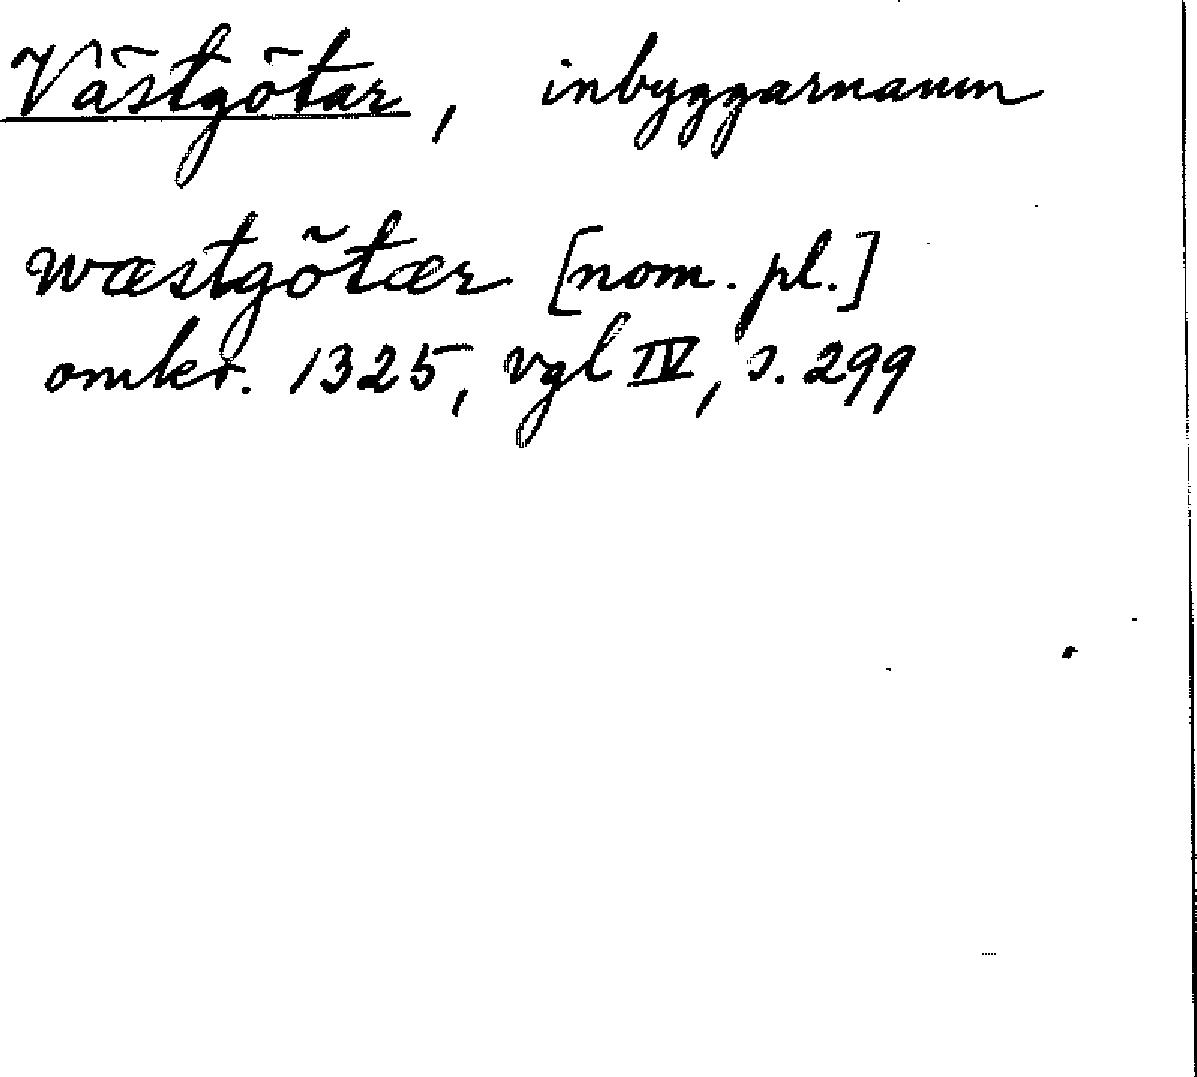 Västgötar, inbyggarnamn
wæstgötær [nom. pl.]
omkr. 1325, vgl IV, s. 299